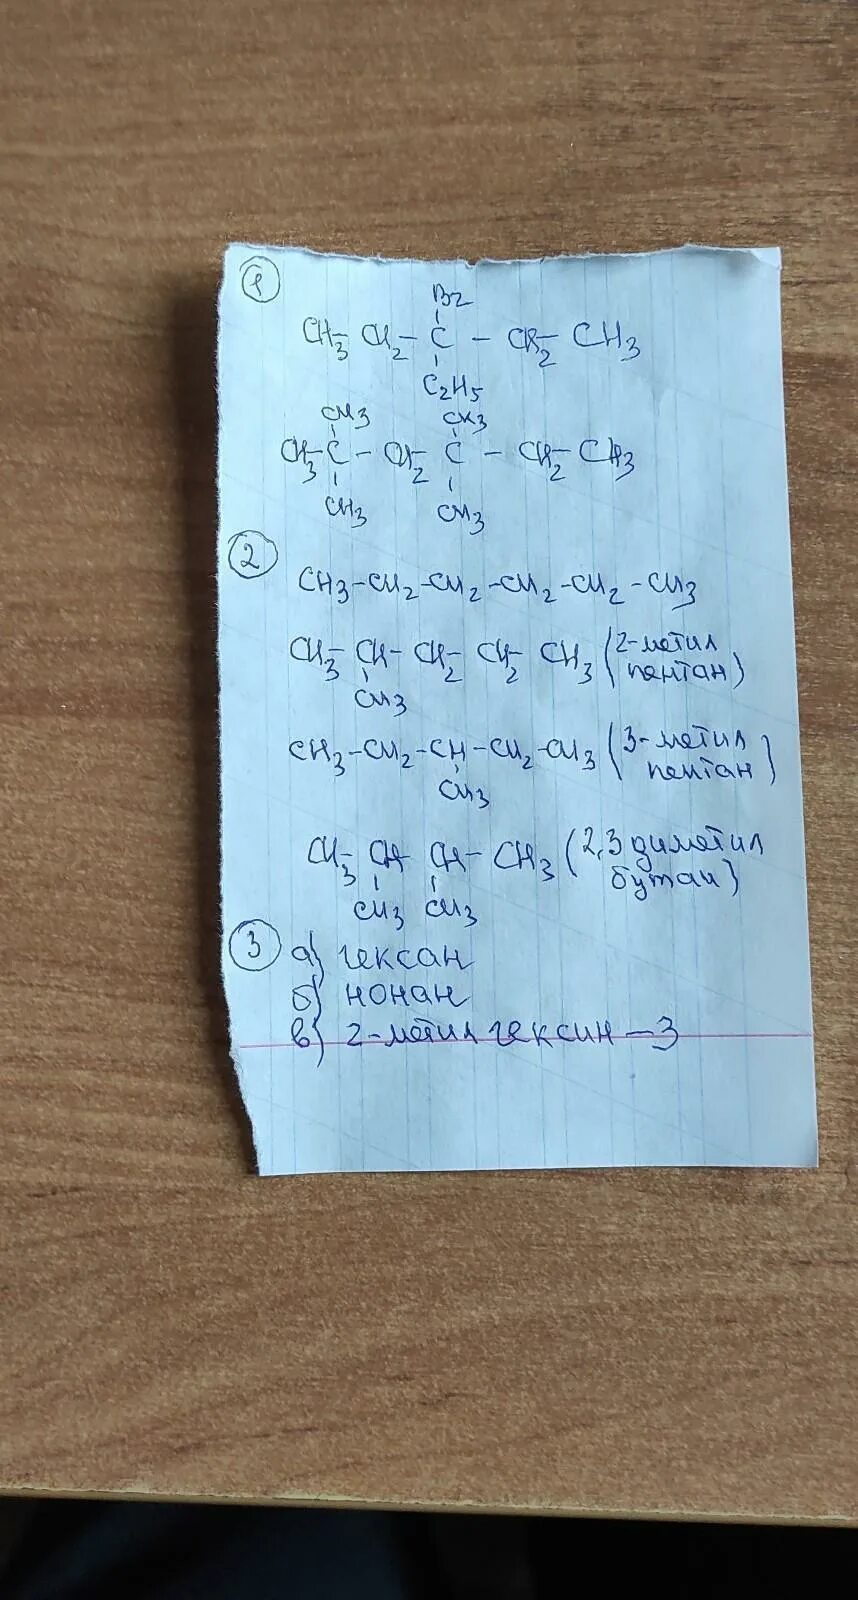 1
Br
CH3-CH2-C-CH2-CH3
C2H5
CH3 CH3
CH3-C-CH2-C-CH2-CH3
CH3 CH3
2
CH3-CH2-CH2-CH2-CH2-CH3
CH3-CH-CH2-CH2-CH3 (2-метил
пентан)
CH3
CH3-CH2-CH-CH2-CH3 (3-метил
пентан)
CH3
CH3-CH-CH-CH3 (2,3 диметил
бутан)
CH3 CH3
3 а) гексан
б) нонан
в) 2-метил гексин-3